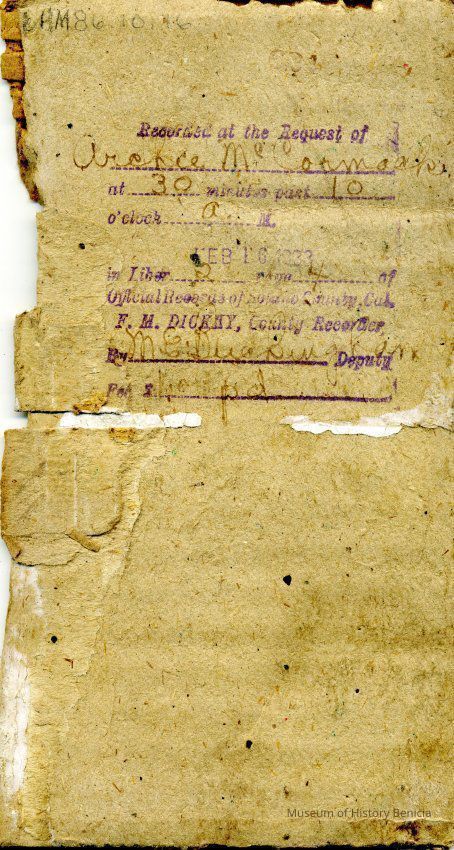 Recorded at the Request of
Archie Mc Cormack
at 30 minutes past 10
o'clock A. M.
FEB 16 1933
in Liber 2 page 4 of
Official Records of Solano County, Cal.
F. M. DICKEY, County Recorder
By Deputy
Fee $ pd
Museum of History Benicia